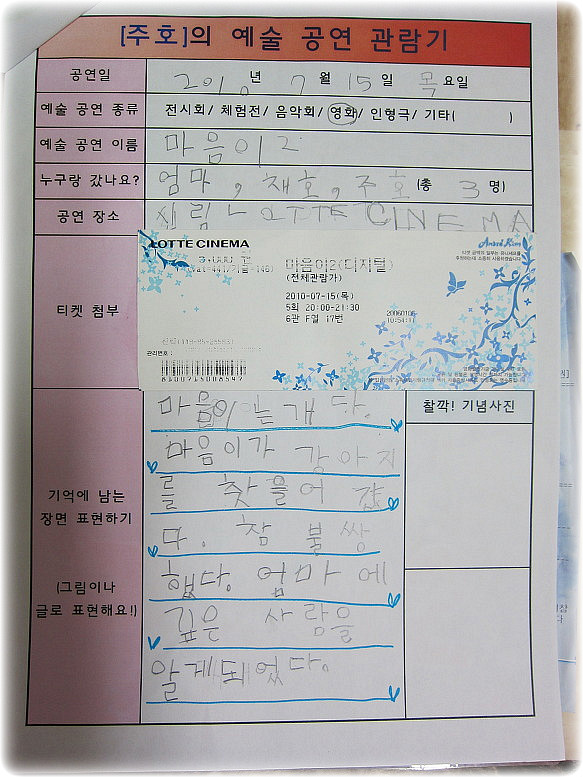 [주호]의 예술 공연 관람기
공연일 2010년 7월 15일 목요일
예술 공연 종류 전시회/ 체험전/ 음악회/ 영화/ 인형극/ 기타( )
예술 공연 이름 마음이2
누구랑 갔나요? 엄마, 채호, 주호 (총 3명)
공연 장소 신림 LOTTE CINEMA
티켓 첨부
LOTTE CINEMA
마음이2(디지털)
(전체관람가)
2010-07-15(목)
5회 20:00-21:30
6관 F열 17번
관리번호:
기억에 남는
장면 표현하기
(그림이나
글로 표현해요!)
마음이는개다.
마음이가 강아지
를 찾을어 갔
다. 참 불쌍
했다. 엄마에
깊은 사랑을
알게되었다.
찰깍! 기념사진